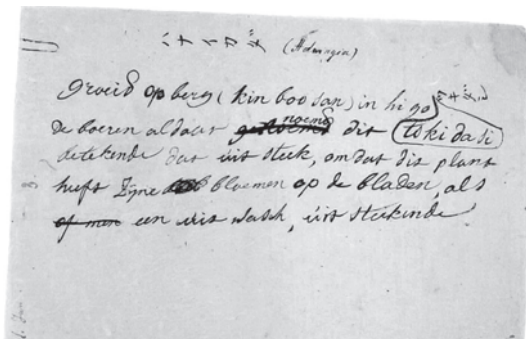 ハナイカダ
groeid op berg (kin boo san) in higo
de boeren aldaar noemd dit tokidasi
betekende dat uit steek, om dat dit plant
heeft zijne bloemen op de bladen, als
of men een uit wasch, uit steekende